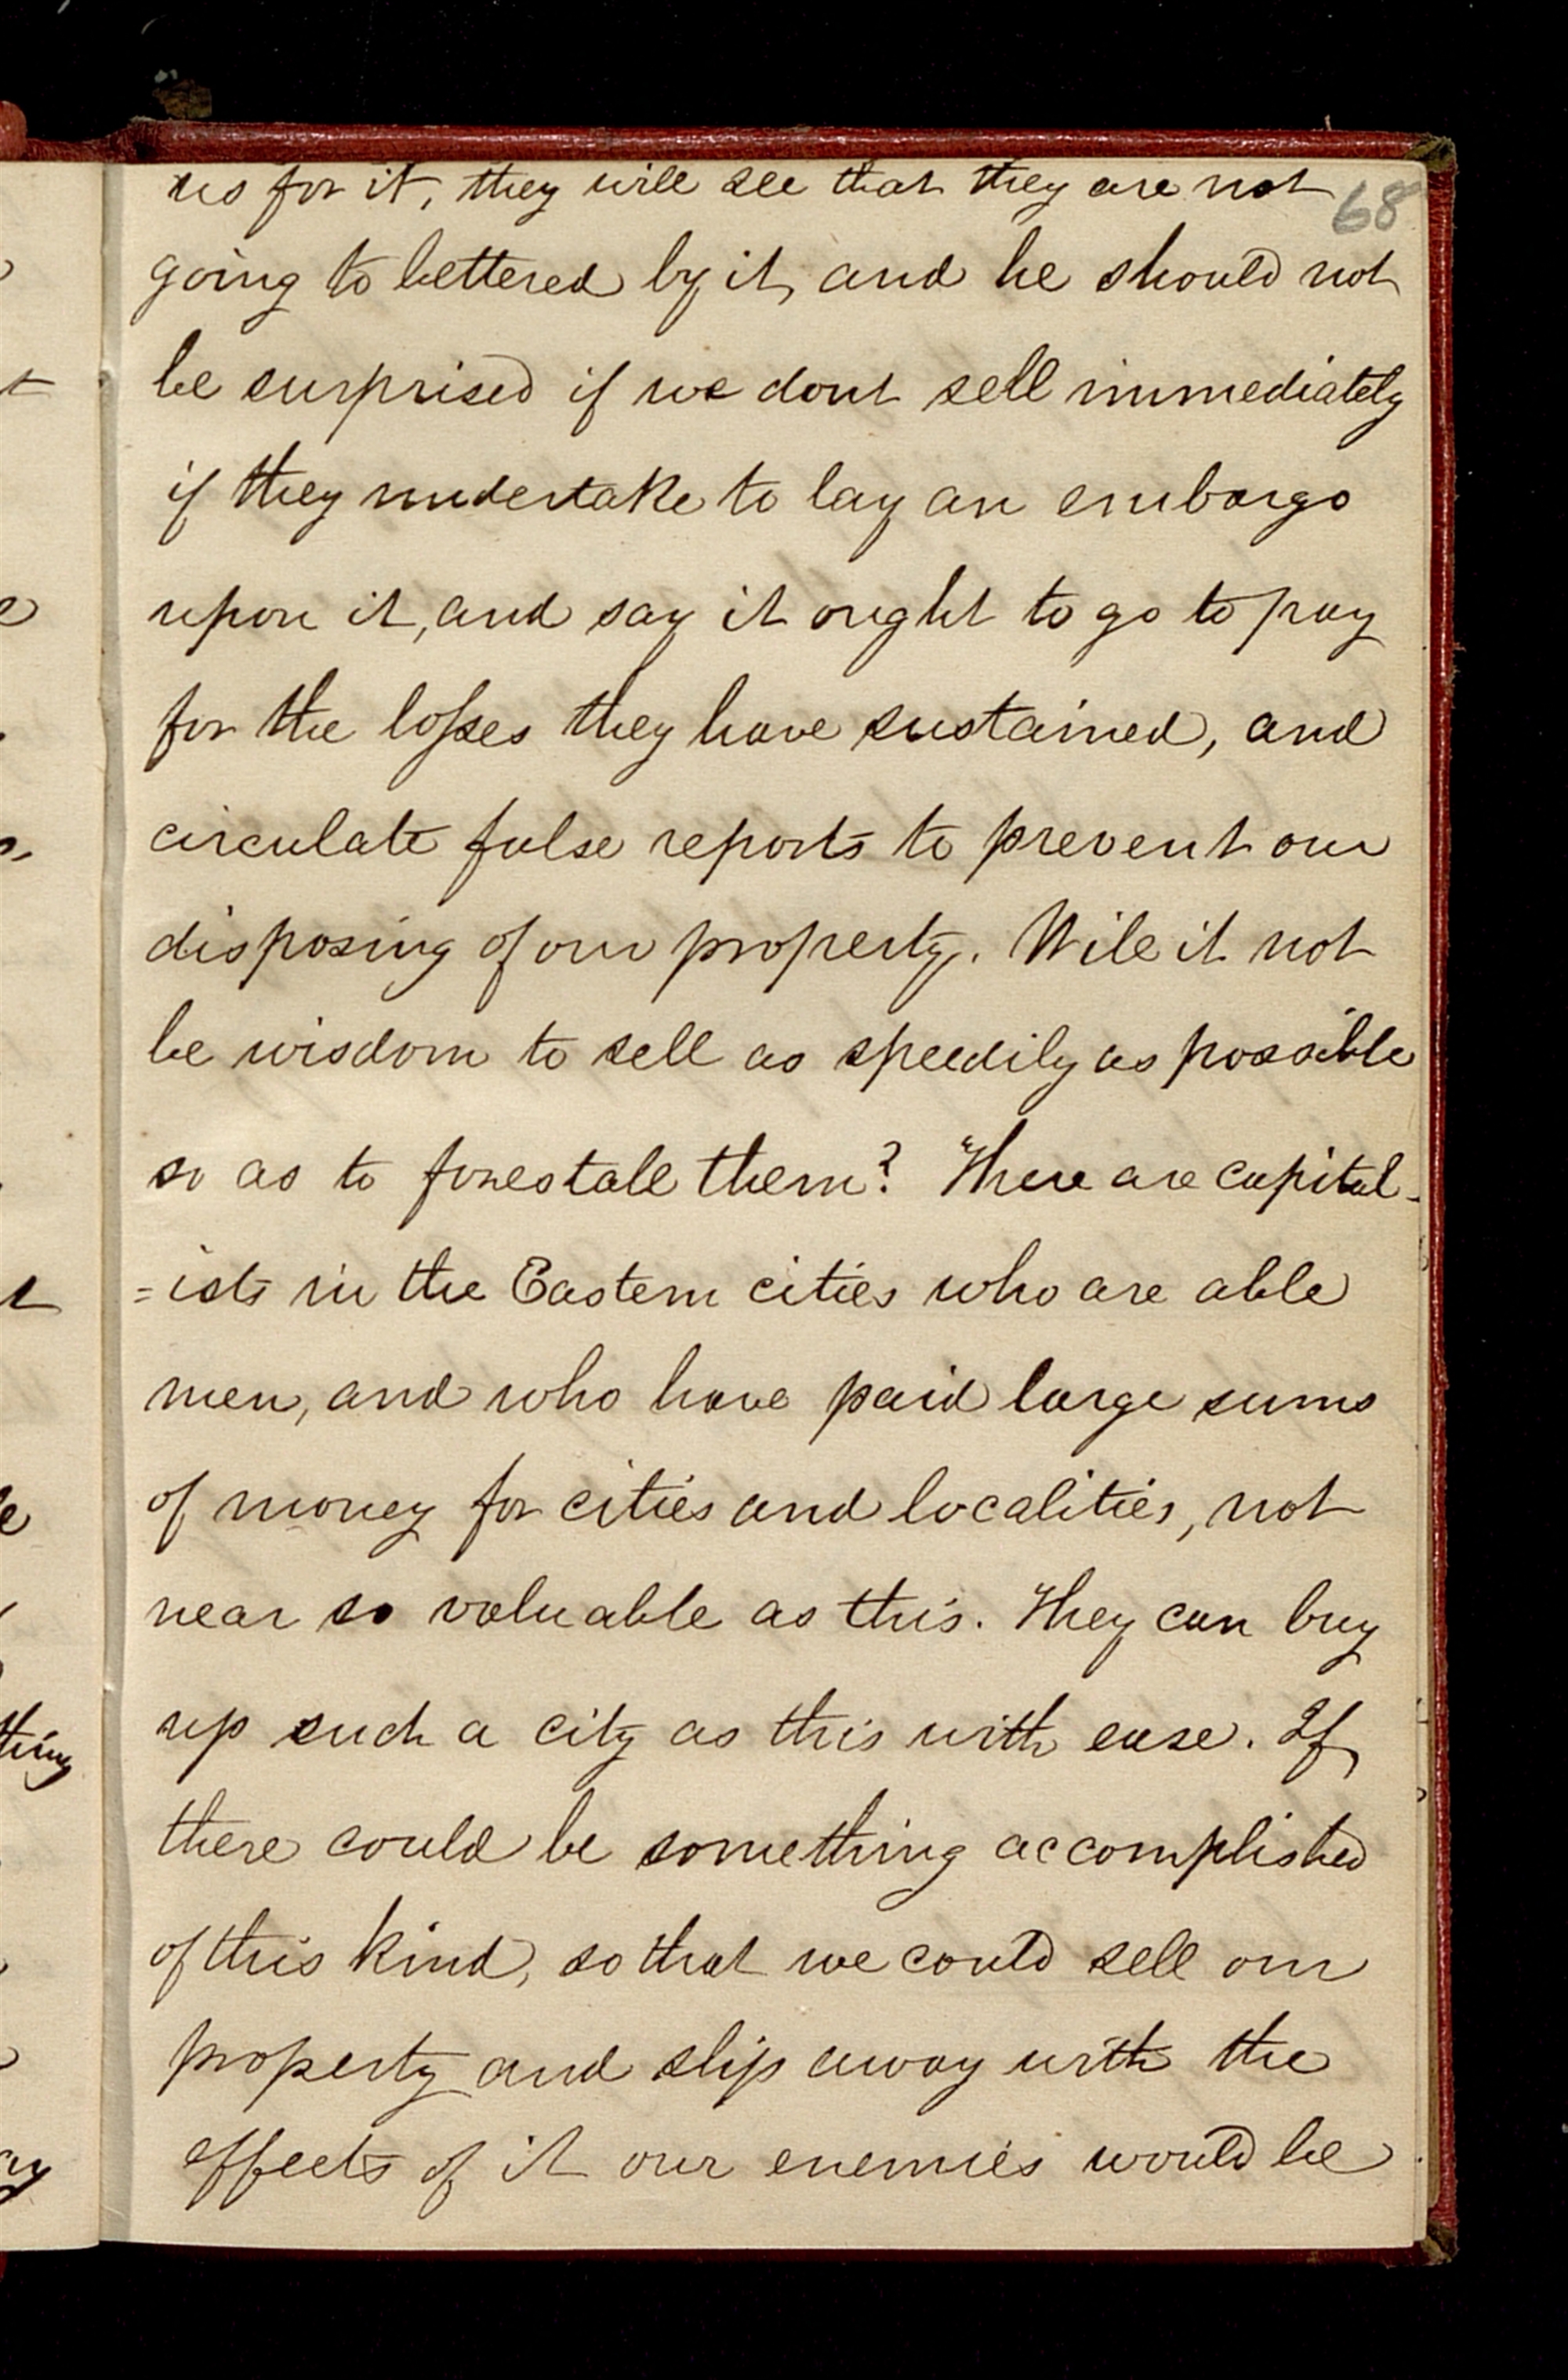 us for it, they will see that they are not
68
going to bettered by it, and he should not
be surprised if we dont sell immediately
if they undertake to lay an embargo
upon it, and say it ought to go to pay
for the losses they have sustained, and
circulate false reports to prevent our
disposing of our property. Will it not
be wisdom to sell as speedily as possible
so as to forestall them? There are capital-
=ists in the Eastern cities who are able
men, and who have paid large sums
of money for cities and localities, not
near so valuable as this. They can buy
up such a city as this with ease. If
there could be something accomplished
of this kind, so that we could sell our
property and slip away with the
effects of it our enemies would be